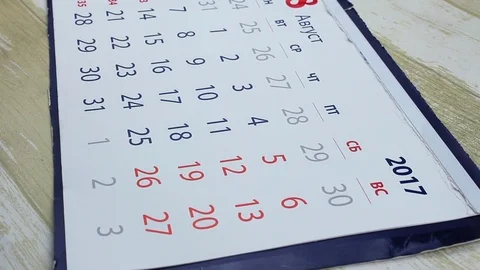 8 Август 2017
ПН ВТ СР ЧТ ПТ СБ ВС
24 25 26 27 28 29 30
31 1 2 3 4 5 6
7 8 9 10 11 12 13
14 15 16 17 18 19 20
21 22 23 24 25 26 27
35 28 29 30 31 1 2 3